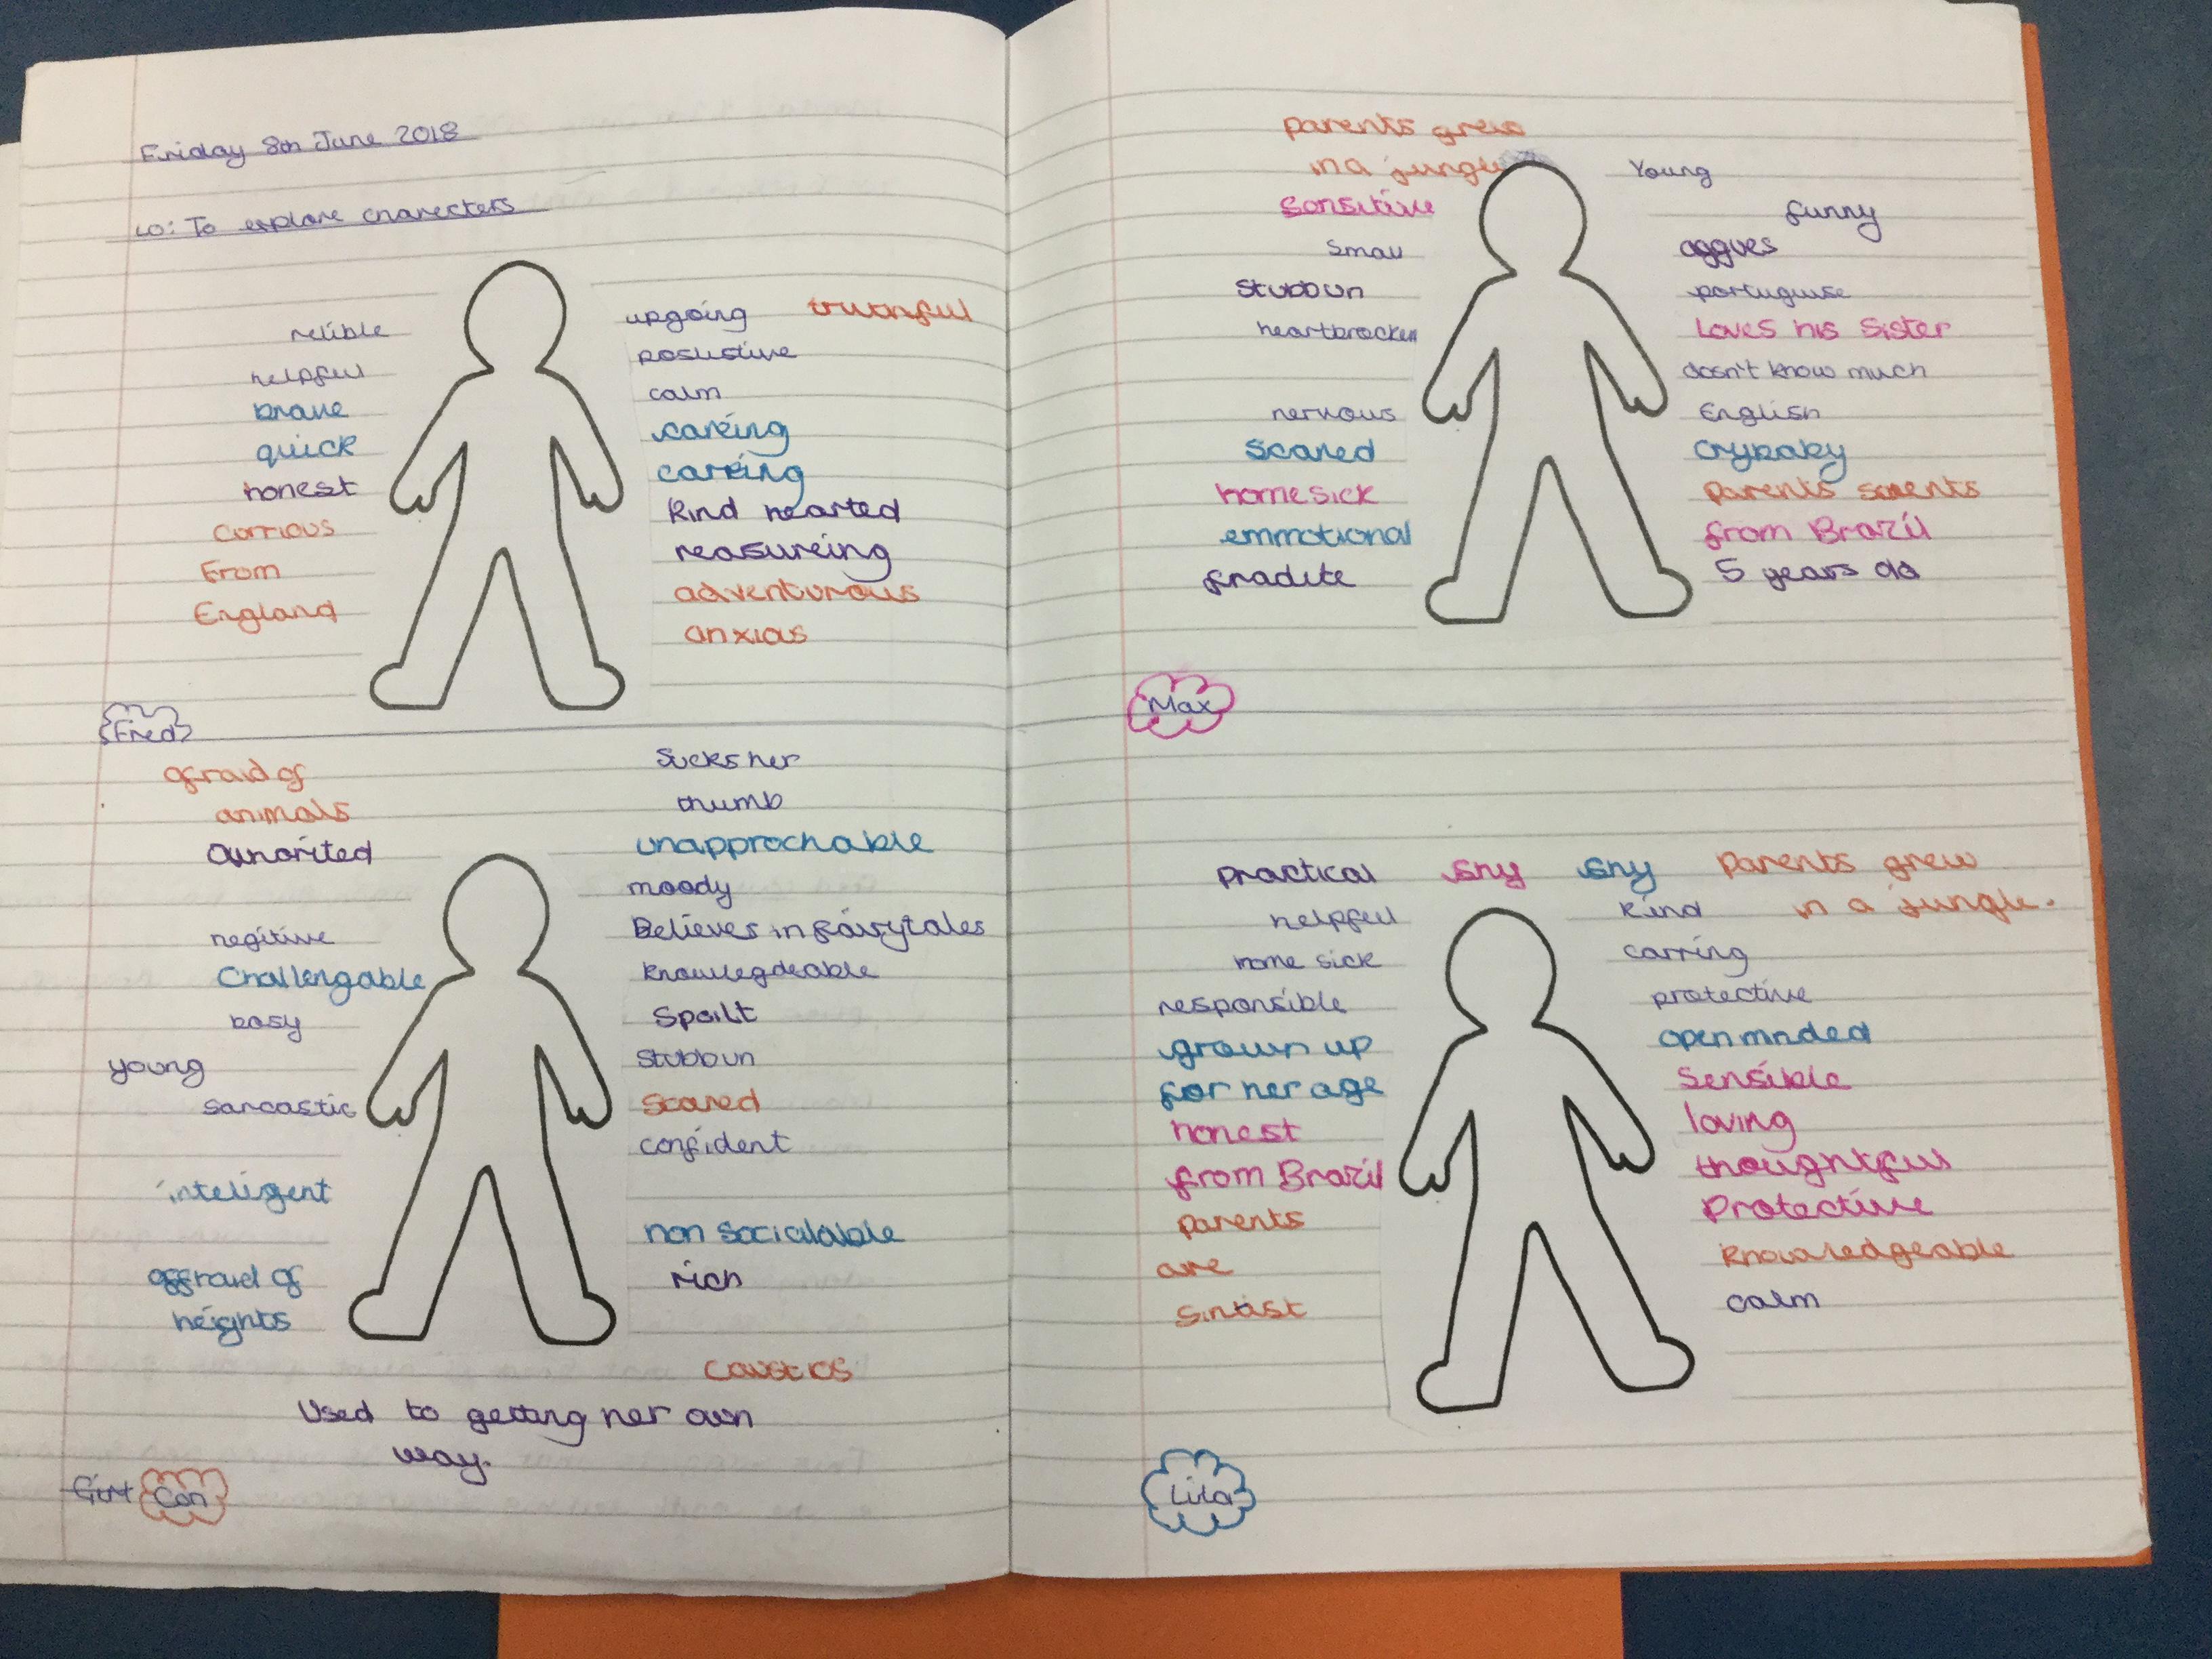 Friday 8th June 2018
LO: To explore charecters
relible
helpful
brave
quick
honest
corrious
From
England
upgoing truthful
posistive
calm
careing
carring
kind hearted
reasureing
adventurous
anxious
Fred
afraid of
animals
negitive
Challengable
bosy
young
sarcastic
inteligent
affraid of
heights
Sucks her
thumb
unapprochable
moody
Believes in fairytales
knowlegdeable
Spoilt
Stubbun
Scared
confident
non socialable
rich
Used to getting her own
way.
Girl Con
parents grew
in a jungle
Sensitive
Small
Stubbun
heartbrocken
nervous
Scared
homesick
emmotional
Young
funny
portuguise
Loves his Sister
dosn't know much
English
Crybaby
Parents
from Brazil
5 years old
Max
practical shy shy Parents grew
in a jungle.
helpful
home sick
responsible
grown up
for her age
honest
from Brazil
parents
are
kind
carring
protective
open minded
Sensible
loving
thoughtful
Protective
knowledgeable
calm
Lila